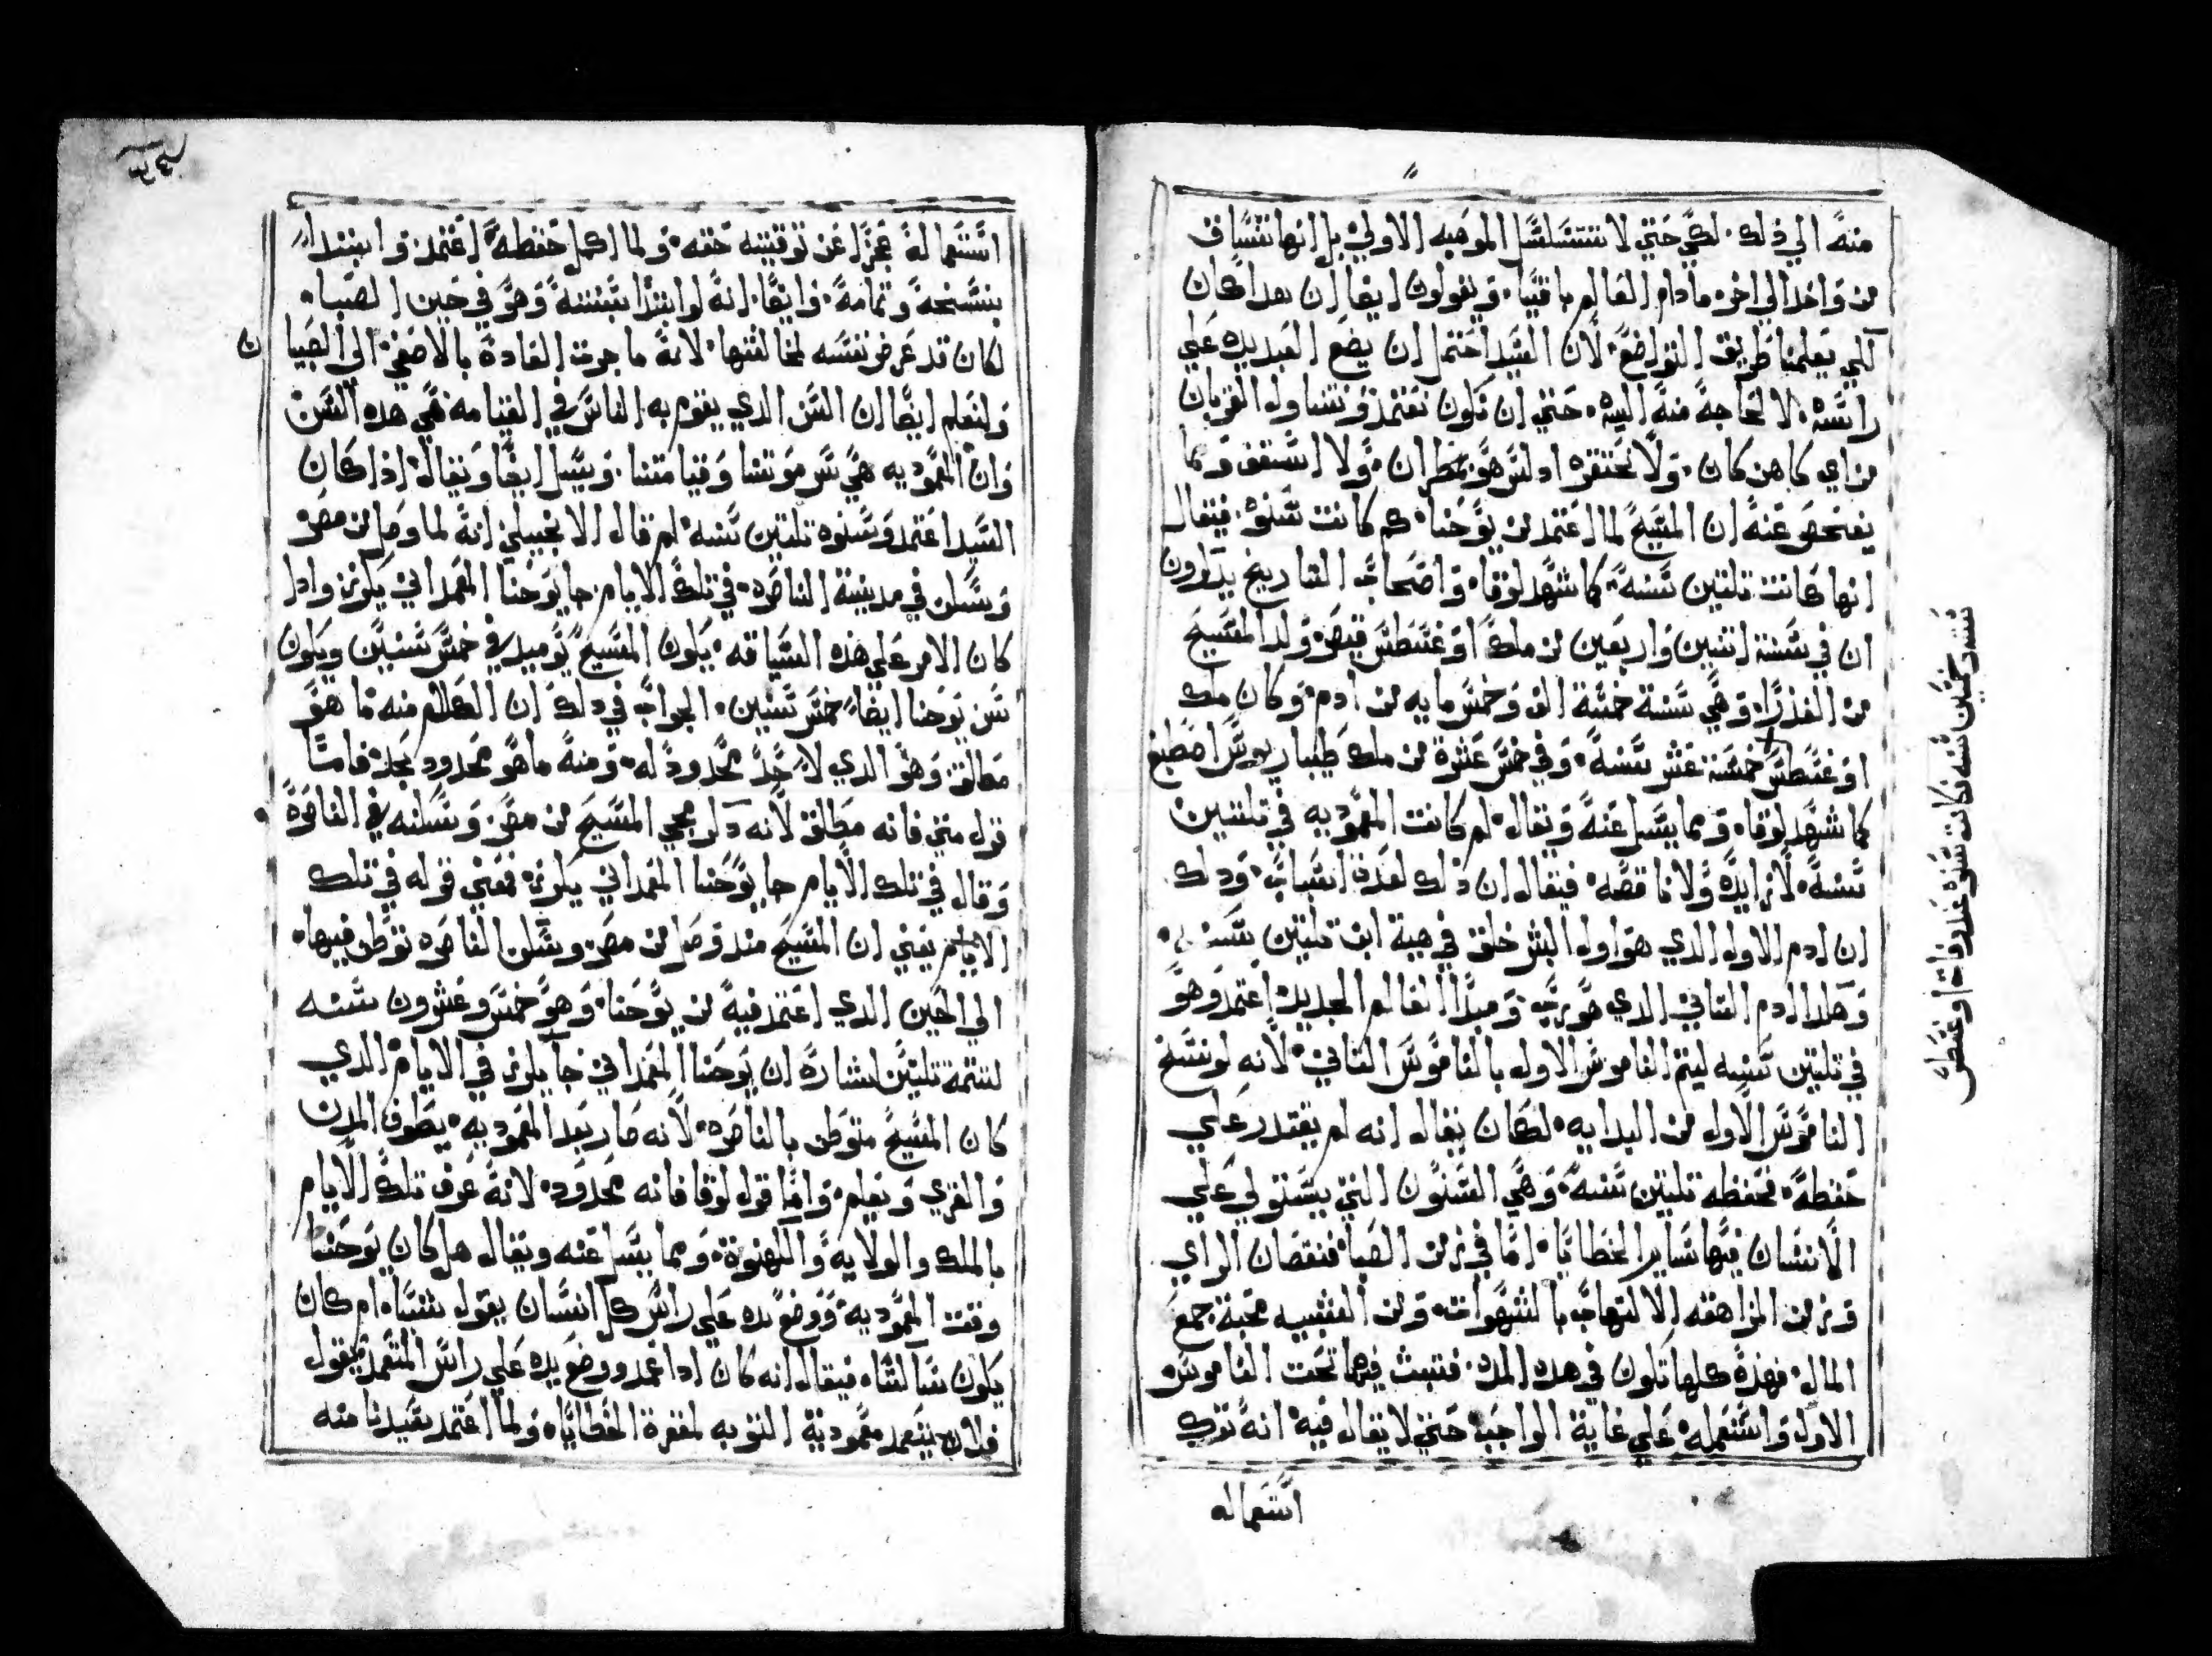 منه الي ذلك. لكي حتي لا تتسلسل الموهبه الاولي بل انها تنساق
من واحد الي اخر ما دام العالم باقيا. ويقولون ايضا ان هدا كان
لكي يعلمنا طريق التواضع. لان السيد احتمل ان يضع العبد يده علي
راسه. لا لحاجة منه اليه. حتي ان نكون نعتمد ونتناول القربان
من اي كاهن كان. ولا نحتقره اد ليس هو مطران. ولا اسقف ومما
يفحص عنه ان المسيح لما اعتمد من يوحنا. كم كانت سنوه. فيقال
انها كانت تلتين سنه كما شهد لوقا. واصحاب التاريخ يدكرون
ان في سنة اتنين واربعين من ملك اوغسطس قيصر ولد المسيح
من العذرا. وهي سنة خمسة الف وخمس مايه من ادم. وكان ملك
اوغسطس خمسة عشر سنه. وفي خمس عشرة من ملك طيباريوس اصطبغ
كما شهد لوقا. ومما يسل عنه ويقال. لم كانت المعموديه في تلتين
سنه. لا زايده ولا ناقصه. فيقال ان ذلك لعدة اسباب. ودلك
ان ادم الاول الدي هو اول البشر خلق في هية ابن تلتين سنه.
وهكدا ادم التاني الدي هو رب ومبدا العالم الجديد اعتمد وهو
في تلتين سنه ليتم الناموس الاول بالناموس التاني. لانه لو نسخ
الناموس الاول من البدايه. لكان يقال انه لم يقتدر علي
حفظه. فحفظه تلتين سنه. وهي السنون التي يستولي علي
الانسان فيها ساير الخطايا. اما في زمن الصبا فنقصان الراي
وزمن المراهقه الالتهاب بالشهوات. ومن الشبيبه محبة جمع
المال. فهذه كلها تكون في هده المده. فتبت فيها تحت الناموس
الاول واستعمله. علي غاية الواجب. حتي لا يقال فيه. انه ترك
استعماله
سنه وخمسين سنه كانت سنوه عند وفاة اوغسطس
استعماله عجزا عن توفيته حقه. ولما اكمل حفظه اعتمد وابتدا
بنسخه وتمامه. وايضا. انه لو ابتدا بنسخه وهو في حين الصبا.
لكان قد عرض نفسه لمخالفتها. لانه ما جرت العاده بالاصغي الي الصبيان
ولنعلم ايضا ان السن الدي يقوم به الناس في القيامه هي هده السن
وان المعموديه هي سر موتنا وقيامتنا. ويسل ايضا ويقال. اذا كان
السيد اعتمد وسنوه تلتين سنه. لم قال الانجيلي انه لما وصل من مصر
وسكن في مدينة الناصره. في تلك الايام جا يوحنا المعمداني يكرز واذا
كان الامر علي هذه السياقه. يكون المسيح يوميد في خمس سنين ويكون
سن يوحنا ايضا خمس سنين. الجواب في دلك ان الكلام منه ما هو
مطلق وهو الدي لا حد محدود له. ومنه ما هو محدود بحد. فاما
قول متي فانه مطلق لانه دكر مجي المسيح من مصر. وسكنه في الناصرة
وقال في تلك الايام جا يوحنا المعمداني يكرز. فمعني قوله في تلك
الايام يعني ان المسيح مند وصل من مصر وسكن الناصره توطن فيها.
الي الحين الدي اعتمد فيه من يوحنا. وهو خمس وعشرون سنه
لتتمة تلتين اشارة ان يوحنا المعمداني جا يكرز في الايام الدي
كان المسيح متوطن بالناصره. لانه صار بعد المعموديه. يطوف المدن
والقري ويعلم. واما قول لوقا فانه محدود. لانه عرف تلك الايام
بالملك والولايه والكهنوة. ومما يسل عنه ويقال هل كان يوحنا
وقت المعموديه. ووضع يده علي راس كل انسان يقول شيا. ام كان
يكون ساكتا. فيقال انه كان ادا عمد ووضع يده علي راس المتعمد يقول
فلان يتعمد معمودية التوبه لمغفرة الخطايا. ولما اعتمد سيدنا منه